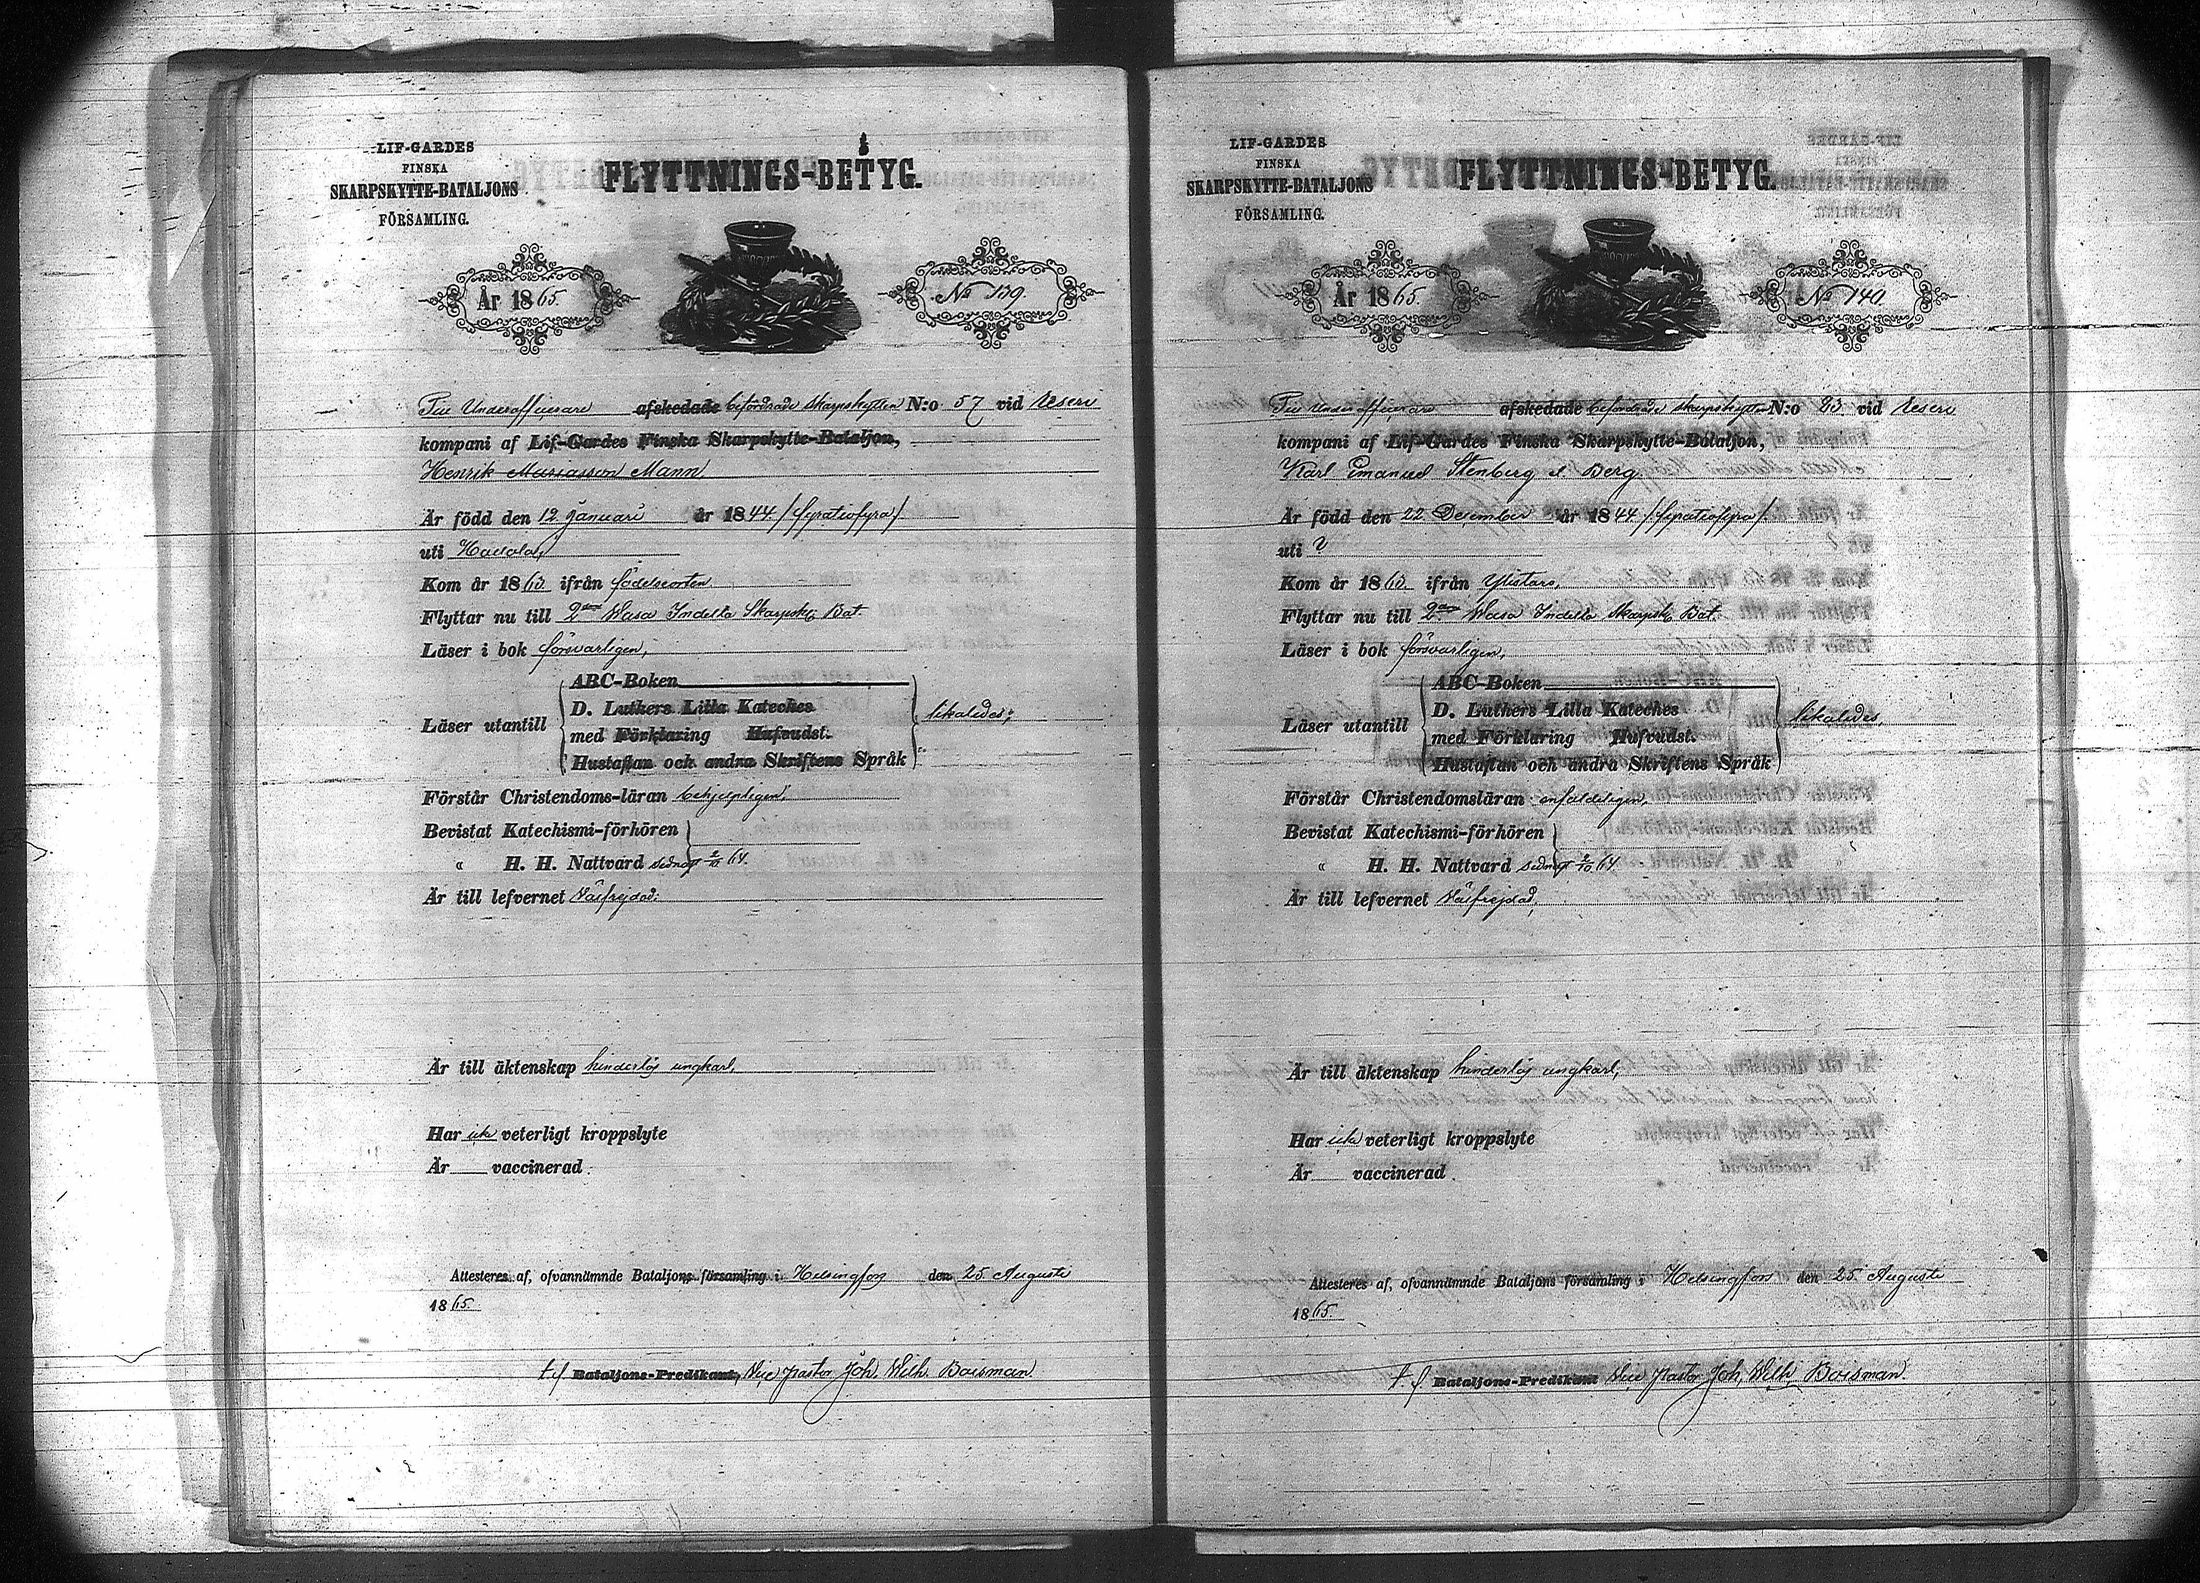 LIF-GARDES
FINSKA
SKARPSKYTTE-BATALJONS
FÖRSAMLING.
FLYTTNINGS-BETYG.
År 1865.
No 139.
Till Underofficerare afskedade befordrade Skarpskytten N:o 57 vid Reserv
kompani af Lif-Gardes Finska Skarpskytte-Bataljon,
Henrik Mariasson Mann,
Är född den 12 Januari år 1844 /fyratiofyra/
uti
Kom år 1863. ifrån födelseorten
Flyttar nu till 2dra Wasa Indelta Skarpsk. Bat
Läser i bok försvarligen,
Läser utantill
ABC-Boken
D. Luthers Lilla Kateches
med Förklaring Hufvudst.
Hustaflan och andra Skriftens Språk
likaledes;
Förstår Christendoms-läran behjelpligen,
Bevistat Katechismi-förhören
" H. H. Nattvard sednast 2/10 64.
Är till lefvernet Välfrejdad;
Är till äktenskap hinderlös ungkarl,
Har ick veterligt kroppslyte
Är vaccinerad.
Attesteres af, ofvannämnde Bataljons församling i Helsingfors den 25 Augusti
1865.
t.f Bataljons-Predikant, Vice Pastor Joh. Wilh. Boisman.
LIF-GARDES
FINSKA
SKARPSKYTTE-BATALJONS
FÖRSAMLING.
FLYTTNINGS-BETYG.
År 1865.
No 140.
Till Underofficerare afskedade befordrade Skarpskytten N:o 93 vid Reserv
kompani af Lif-Gardes Finska Skarpskytte-Bataljon,
Karl Emanuel Stenberg el Berg.
Är född den 22 December år 1844 /fyratiofyra/
uti ?
Kom år 1863. ifrån Ylistaro,
Flyttar nu till 2dra Wasa Indelta Skarpsk. Bat.
Läser i bok försvarligen,
Läser utantill
ABC-Boken
D. Luthers Lilla Kateches
med Förklaring Hufvudst.
Hustaflan och andra Skriftens Språk
likaledes,
Förstår Christendomsläran enfaldeligen,
Bevistat Katechismi-förhören
" H. H. Nattvard sednast 2/10 64.
Är till lefvernet Välfrejdad,
Är till äktenskap hinderlös ungkarl,
Har ick veterligt kroppslyte
Är vaccinerad.
Attesteres af, ofvannämnde Bataljons församling i Helsingfors den 25 Augusti
1865.
t.f. Bataljons-Predikant Vice Pastor Joh. Wilh. Boisman.